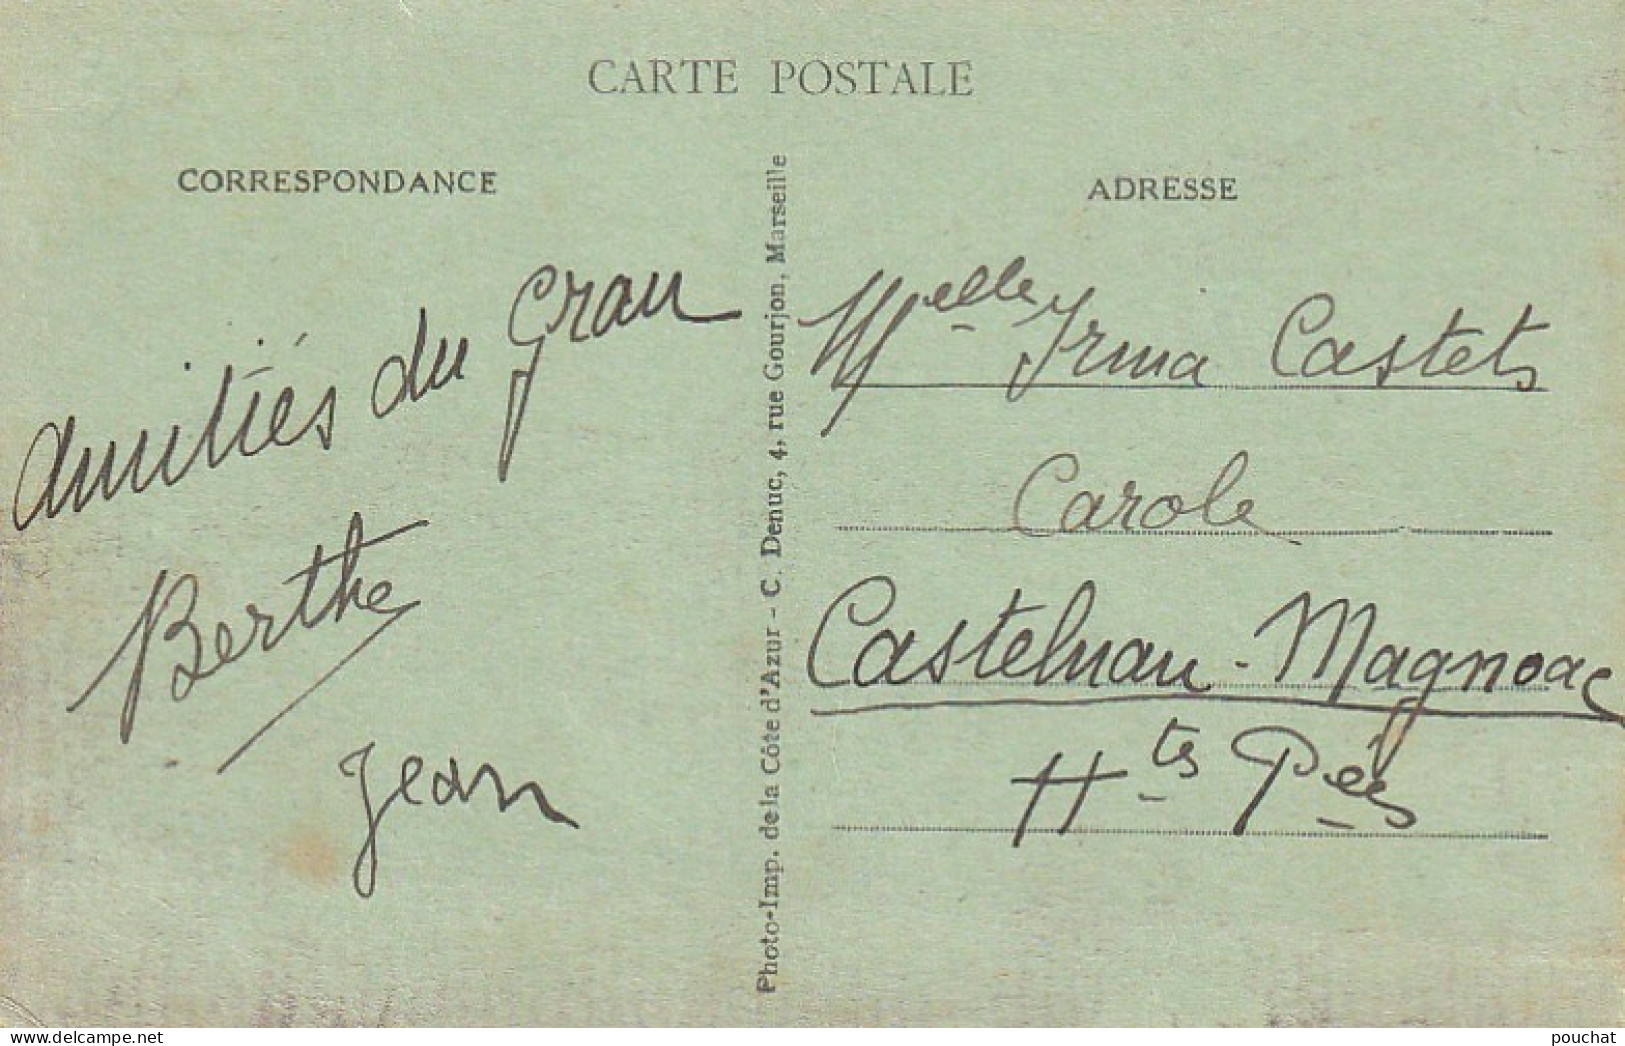 CARTE POSTALE
CORRESPONDANCE
Amitiés du Grau
Berthe
Jean
Photo-Imp. de la Côte d'Azur - C. Denuc, 4, rue Gourjon, Marseille
ADRESSE
Melle Irma Castets
Carole
Castelnau-Magnoac
Htes Pées
delcampe.net
pouchat